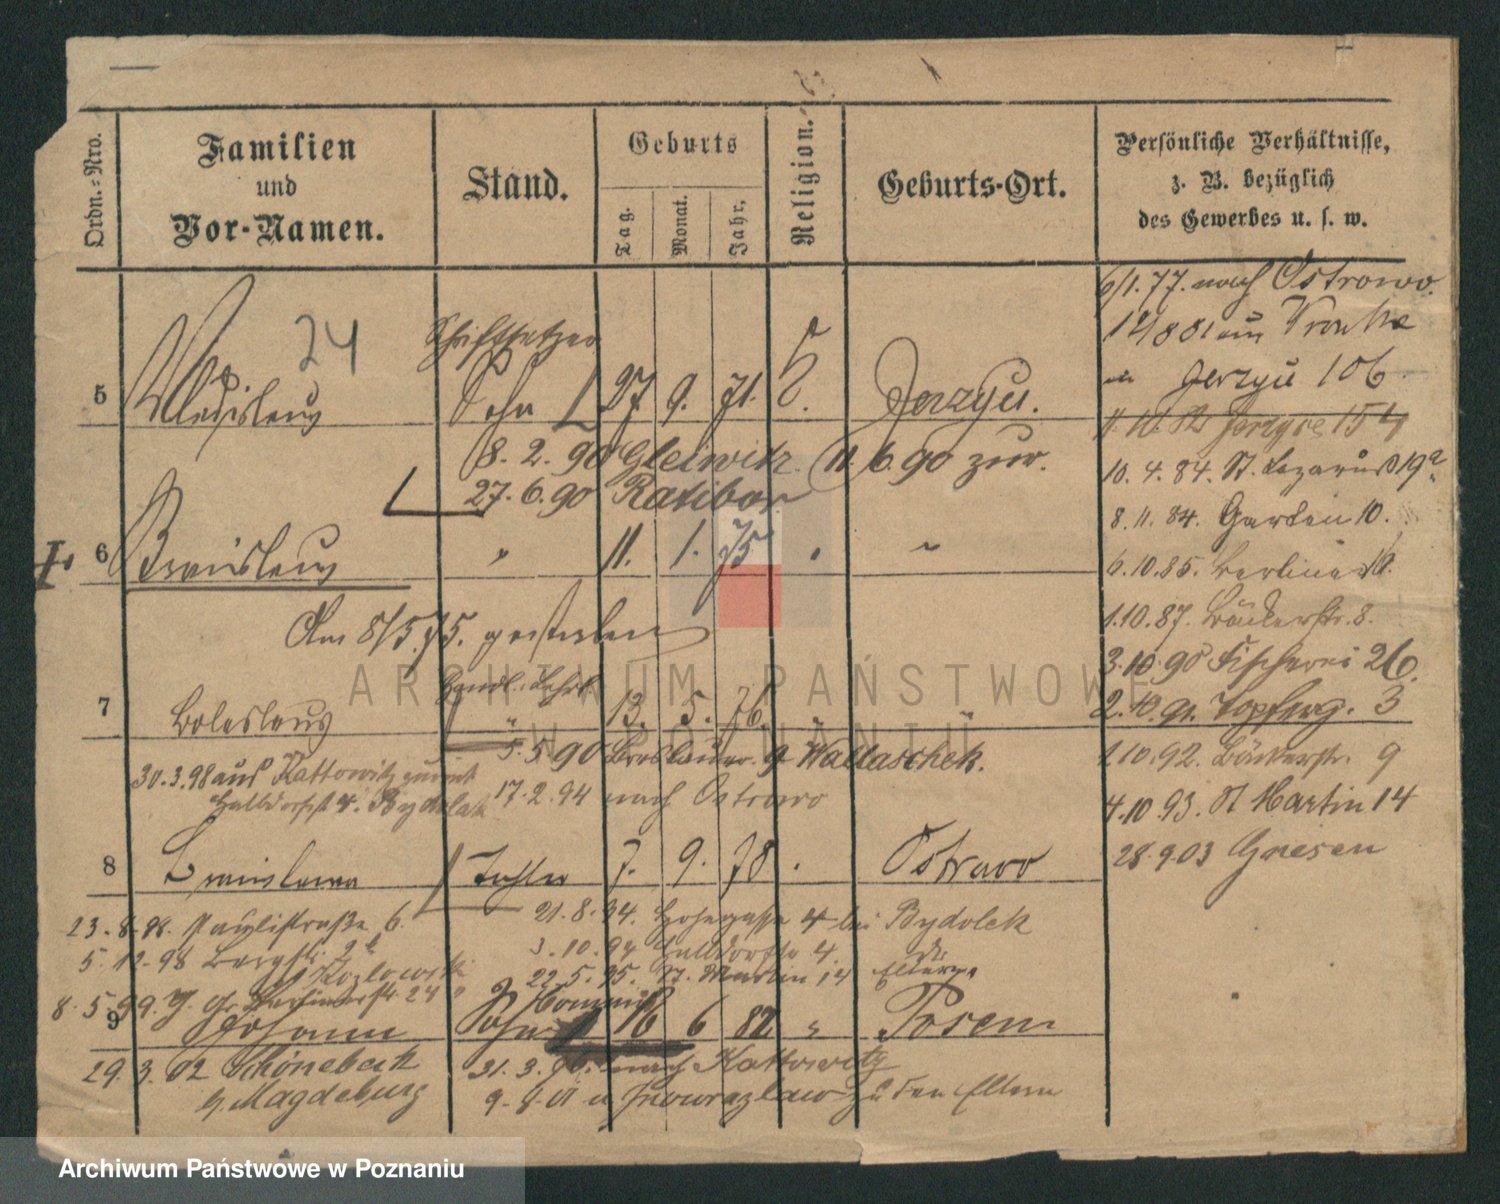 Ordn.-Nro.
Familien
und
Vor-Namen.
Stand.
Geburts
Tag.
Monat.
Jahr,
Religion.
Geburts-Ort.
Persönliche Verhältnisse,
z. B. bezüglich
des Gewerbes u. s. w.
24
Schriftsetzer
5 Wladislaus Sohn 27 9. 71. Jerzyce.
8. 2. 90 Gleiwitz. 11. 6. 90 zur.
27. 6. 90 Ratibor
6 Bronislaus " 11. 1. 75
Am 8/5. 75. gestorben
7 Boleslaus 13. 5. 76
5. 5. 90 Breslauer. 9 Wallaschek.
30. 3. 98 aus Kattowitz
Halbdorfstr 4. Bydolek
17. 2. 94 nach Ostrowo
8 Tochter 7. 9. 78 Ostrowo
23. 8. 98. Paulistraße 6.
21. 8. 94. 4 bei Bydolek
5. 12. 98 Bergstr.
Kozlowski
3. 10. 94 Halbdorfstr 4.
22. 5. 95. St. Martin 14 Eltern
8. 5. 99.
9 Johann Sohn 16 6 82 " Posen
29. 3. 02 Schönebeck
b. Magdeburg
31. 3. nach Kattowitz
Inowrazlaw zu den Eltern
6/1. 77. nach Ostrowo.
Jerzyce 106
Jerzyce 154
10. 4. 84. St. Lazarus 19a
8. 11. 84. Garten 10.
6. 10. 85. Berliner
1. 10. 87. Bäckerstr. 8.
3. 10. 90 Fischerei 26.
2. 10. 91. Töpferg. 3
1. 10. 92. Bäckerstr. 9
4. 10. 93. St Martin 14
28. 9. 03 Gnesen
ARCHIWUM PAŃSTWOWE
W POZNANIU
Archiwum Państwowe w Poznaniu